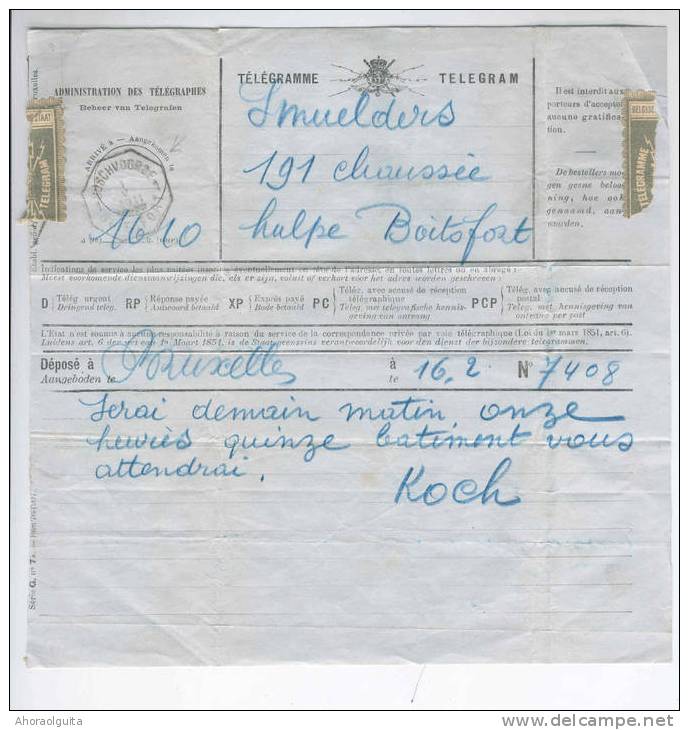 ADMINISTRATION DES TÉLÉGRAPHES
Beheer van Telegrafen
TÉLÉGRAMME TELEGRAM
Il est interdit aux
porteurs d'accepter
aucune gratifica-
tion.
De bestellers mo-
gen geene beloo-
ning, hoe ook
genaamd, aan-
vaarden.
TELEGRAM
TÉLÉGRAMME
BELGIQUE
ARRIVÉ à — Aangekomen te
BOITSFORT
Smuelders
191 chaussée
hulpe Boitsfort
1610
Indications de service les plus usitées inscrites éventuellement en tête de l'adresse, en toutes lettres ou en abrégé :
Meest voorkomende dienstaanwijzingen die, als er zijn, voluit of verkort vóór het adres worden geschreven :
D Télég urgent
Dringend teleg.
RP Réponse payée
Antwoord betaald
XP Exprès payé
Bode betaald
PC Télég. avec accusé de réception
télégraphique
Teleg. met telegrafische kennis-
geving van ontvangst
PCP Télég. avec accusé de réception
postal
Teleg. met kennisgeving van
ontvangst per post
L'État n'est soumis à aucune responsabilité à raison du service de la correspondance privée par voie télégraphique (Loi du 1er mars 1851, art. 6).
Luidens art. 6 der wet van 1n Maart 1851, is de Staat geenszins verantwoordelijk voor den dienst der bijzondere telegrammen.
Déposé à Bruxelles à 16.2 N° 7408
Aangeboden te te
Serai demain matin onze
heures quinze batiment vous
attendrai.
Koch
Série G, n° 7
Ahoraolguita
www.delcampe.net